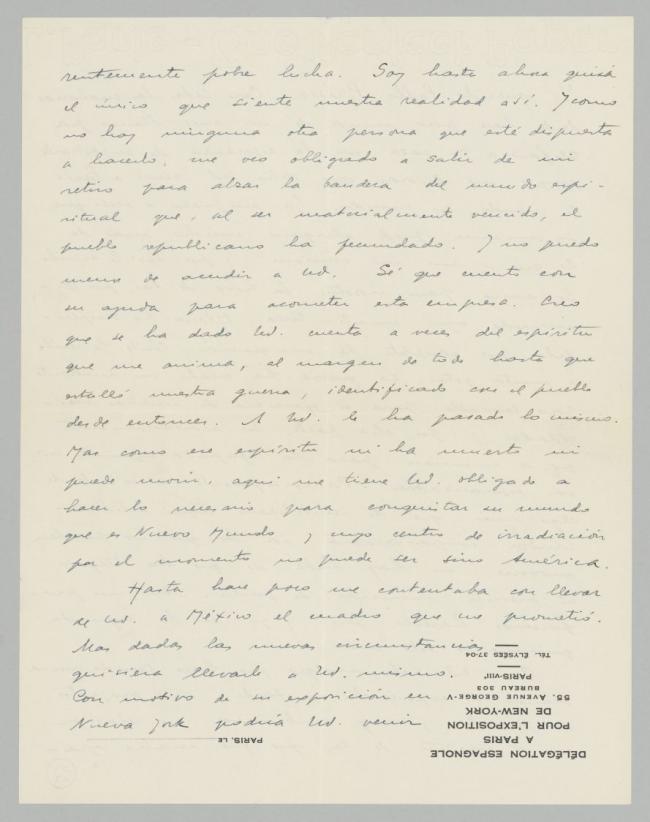 rentemente pobre lucha. Soy hasta ahora quizá
el único que siente nuestra realidad así. Y como
no hay ninguna otra persona que esté dispuesta
a hacerlo, me veo obligado a salir de mi
retiro para alzar la bandera del mundo espi-
ritual que, al ser materialmente vencido, el
pueblo republicano ha fecundado. Y no puedo
menos de acudir a Ud. Sé que cuento con
su ayuda para acometer esta empresa. Creo
que se ha dado Ud. cuenta a veces del espíritu
que me anima, al margen de todo hasta que
estalló nuestra guerra, identificado con el pueblo
desde entonces. A Ud. le ha pasado lo mismo.
Mas como ese espíritu ni ha muerto ni
puede morir, aquí me tiene Ud. obligado a
hacer lo necesario para conquistar su mundo
que es Nuevo Mundo y cuyo centro de irradiación
por el momento no puede ser sino América.
Hasta hace poco me contentaba con llevar
de Ud. a México el cuadro que me prometió.
Mas dadas las nuevas circunstancias
quisiera llevarle a Ud. mismo.
Con motivo de su exposición en
Nueva York podría Ud. venir
DÉLÉGATION ESPAGNOLE
A PARIS
POUR L'EXPOSITION
DE NEW-YORK
55, AVENUE GEORGE-V
BUREAU 303
PARIS-VIIIᵉ
TÉL. ÉLYSÉES 37-04
PARIS, LE